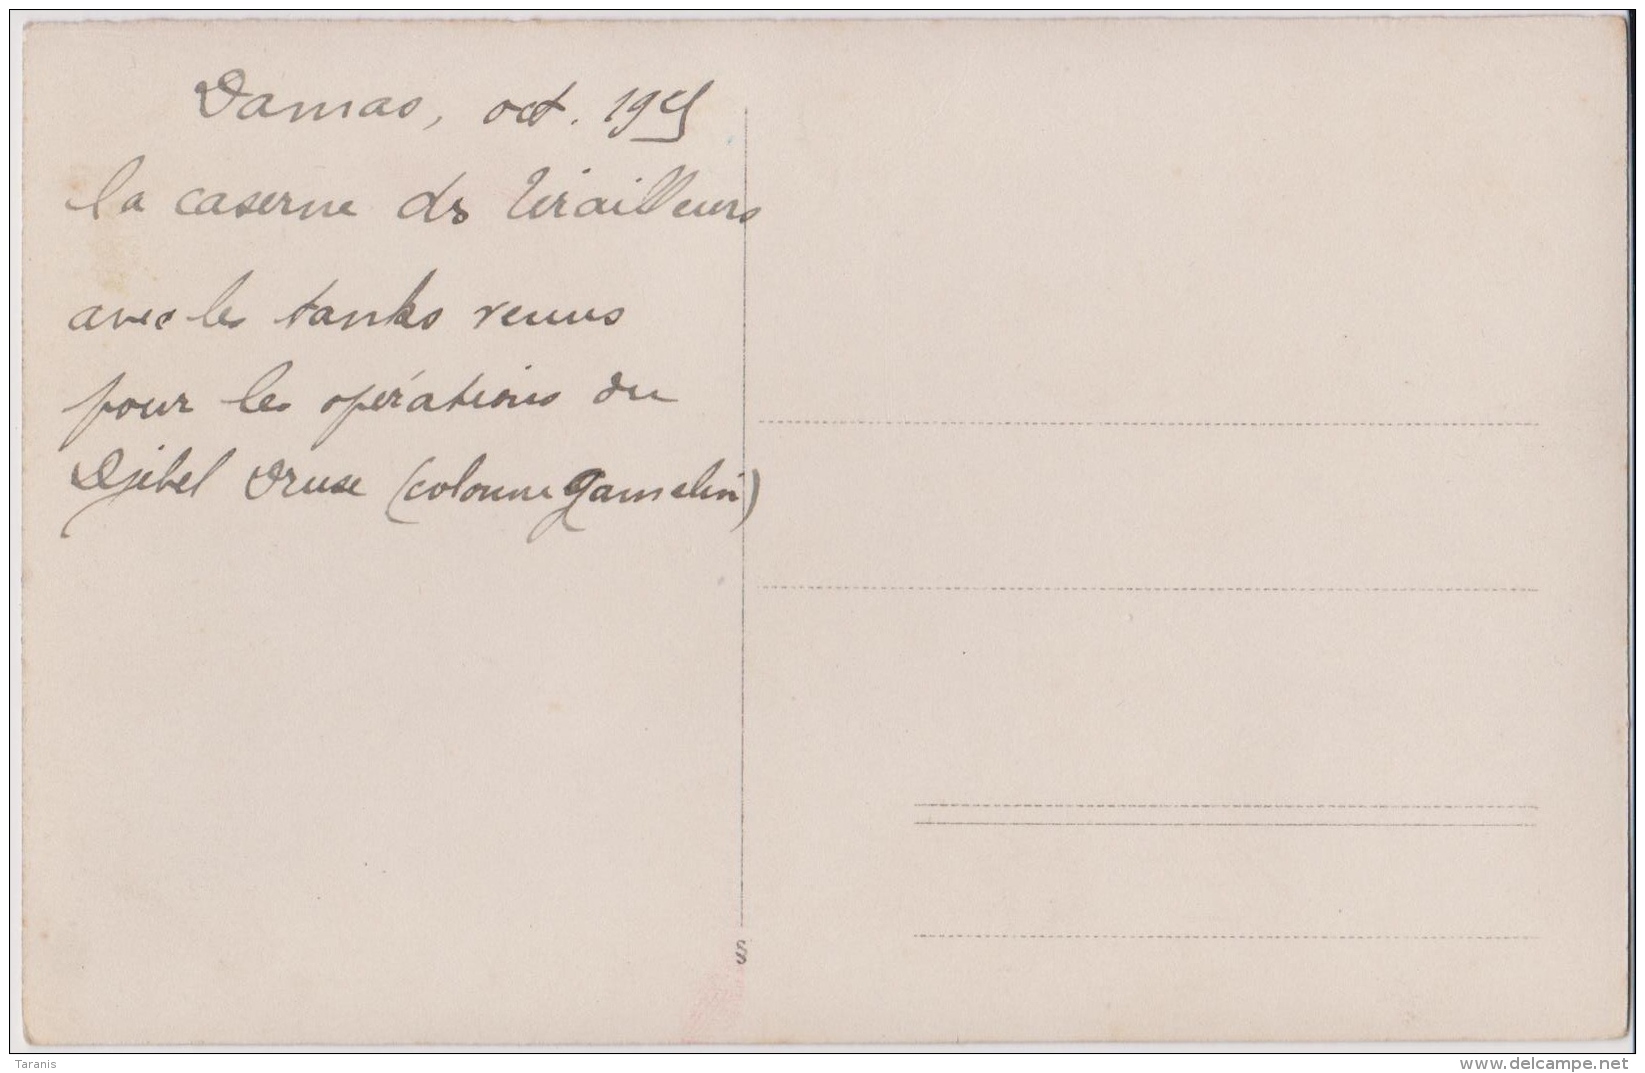 Damas, oct. 1925
la caserne des Tirailleurs
avec les tanks venus
pour les opérations du
Djebel Druse (colonne Gamelin)
§
Taranis
www.delcampe.net